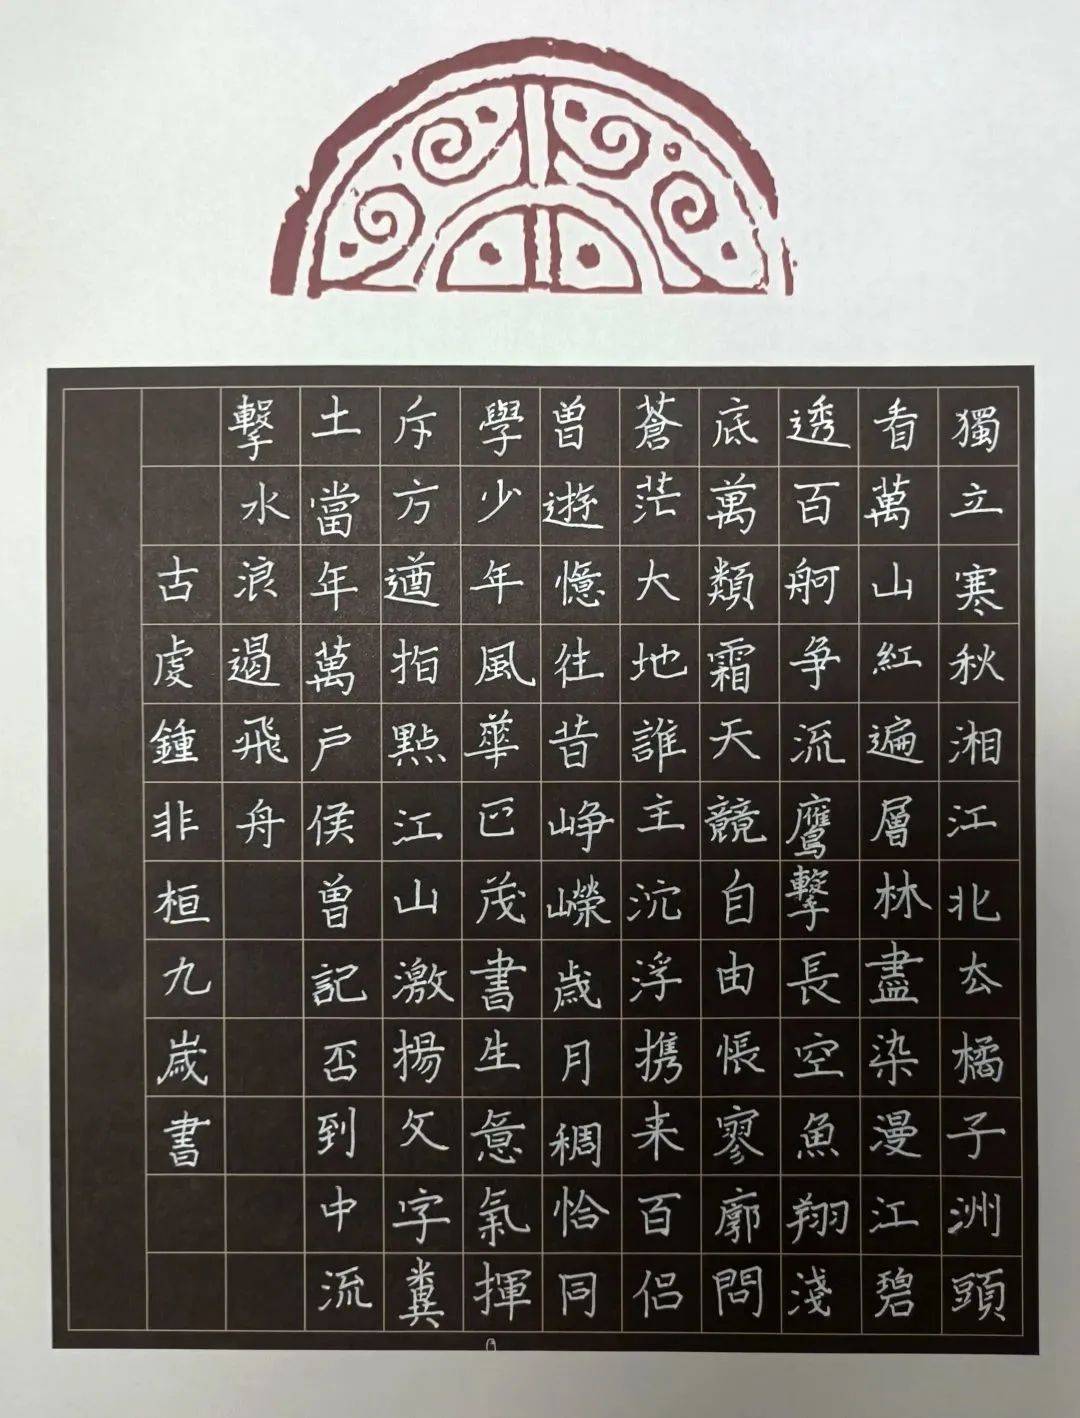 獨立寒秋湘江北去橘子洲頭
看萬山紅遍層林盡染漫江碧
透百舸争流鷹擊長空魚翔淺
底萬類霜天競自由悵寥廓問
蒼茫大地誰主沉浮携来百侣
曾遊憶往昔崢嶸歲月稠恰同
學少年風華正茂書生意氣揮
斥方遒指點江山激揚文字糞
土當年萬户侯曾記否到中流
擊水浪遏飛舟
古虔鍾非桓九歲書